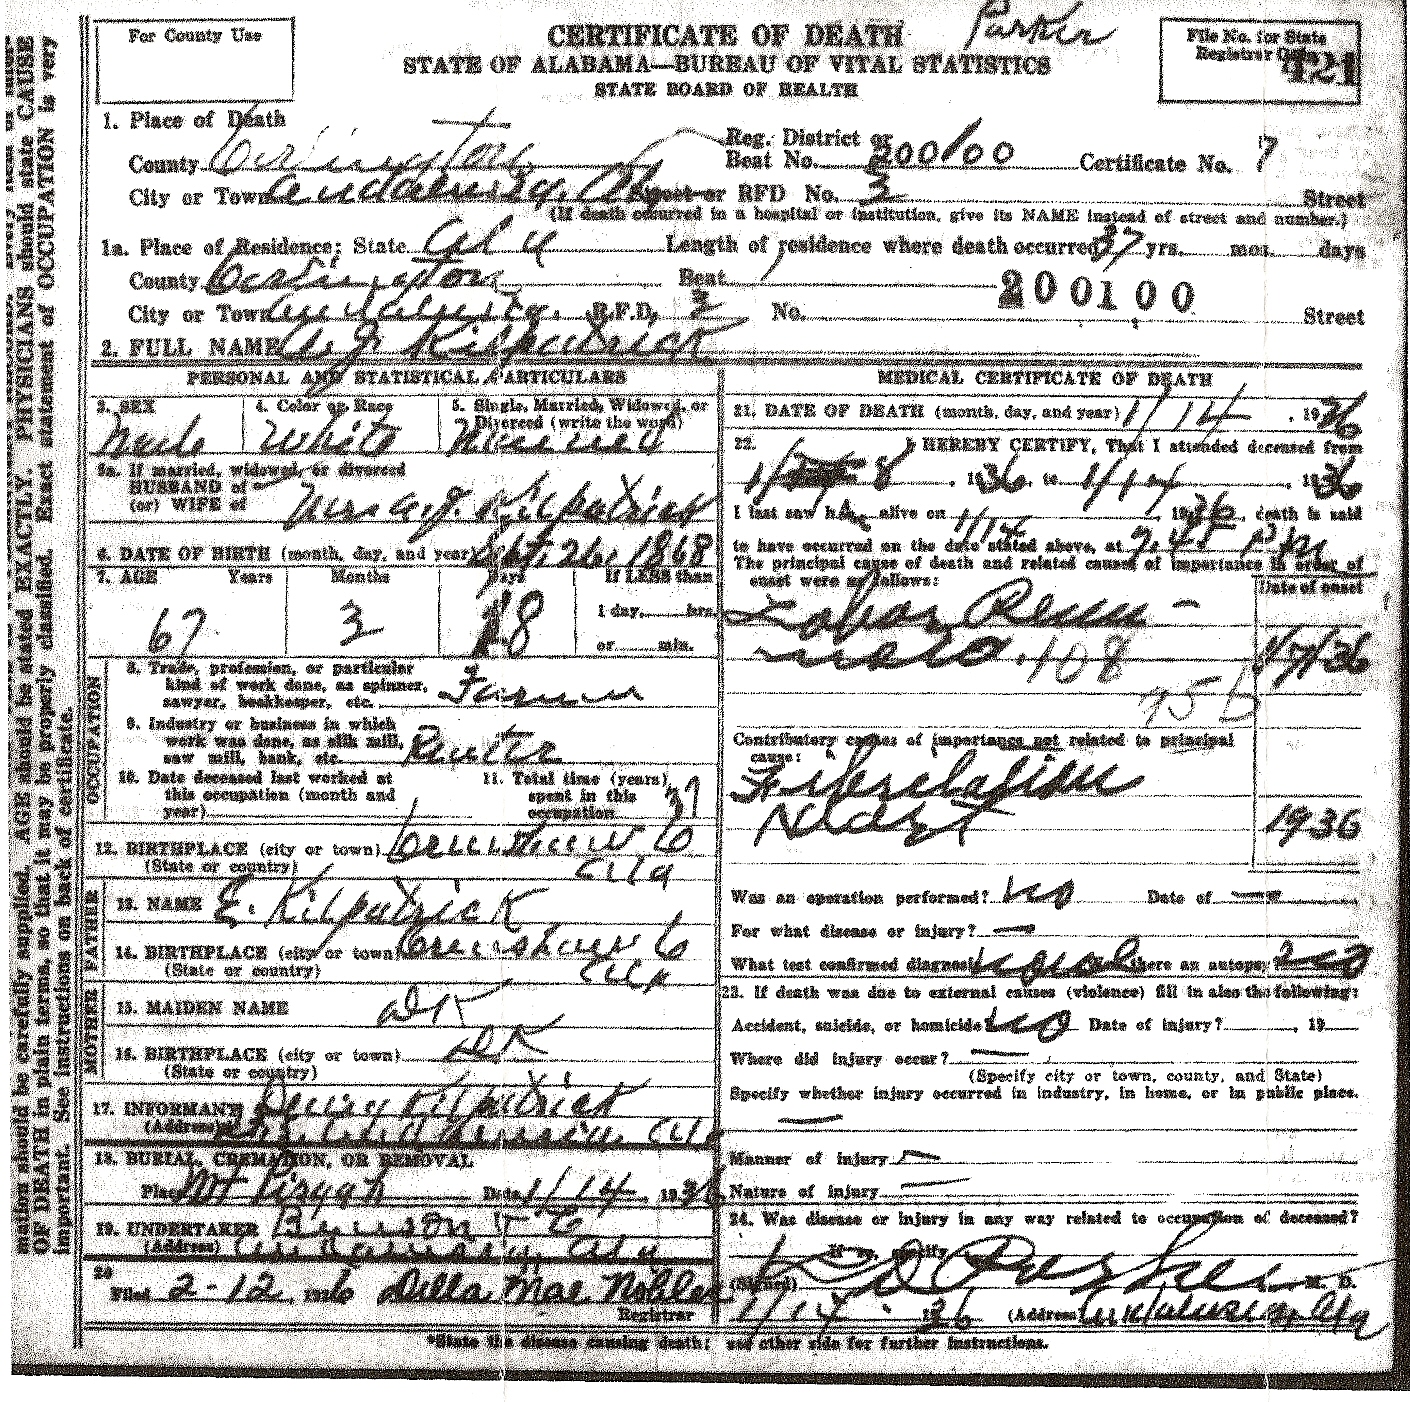 For County Use
CERTIFICATE OF DEATH Parker
STATE OF ALABAMA—BUREAU OF VITAL STATISTICS
STATE BOARD OF HEALTH
File No. for State
Registrar Only
421
1. Place of Death
County Covington Reg. District or Beat No. 200100 Certificate No. 7
City or Town Andalusia, Ala Street or RFD No. 3 Street
(If death occurred in a hospital or institution, give its NAME instead of street and number.)
1a. Place of Residence: State Ala Length of residence where death occurred 37 yrs. mos. days
County Covington Beat 200100
City or Town Andalusia. R.F.D. 3 No. Street
2. FULL NAME A. J. Kilpatrick
PERSONAL AND STATISTICAL PARTICULARS
3. SEX
Male
4. Color or Race
White
5. Single, Married, Widowed, or
Divorced (write the word)
Married
5a. If married, widowed, or divorced
HUSBAND of
(or) WIFE of Mrs A. J. Kilpatrick
6. DATE OF BIRTH (month, day, and year) Sept. 26, 1868
7. AGE Years Months Days If LESS than
67 3 18 1 day, hrs.
or min.
OCCUPATION
8. Trade, profession, or particular
kind of work done, as spinner,
sawyer, bookkeeper, etc. Farmer
9. Industry or business in which
work was done, as silk mill,
saw mill, bank, etc. Renter
10. Date deceased last worked at
this occupation (month and
year)
11. Total time (years)
spent in this
occupation 37
12. BIRTHPLACE (city or town) Crenshaw Co
(State or country) Ala
FATHER
13. NAME E. Kilpatrick
14. BIRTHPLACE (city or town) Crenshaw Co
(State or country) Ala
MOTHER
15. MAIDEN NAME DK
16. BIRTHPLACE (city or town) DK
(State or country)
17. INFORMANT Henry Kilpatrick
(Address) Andalusia, Ala
18. BURIAL, CREMATION, OR REMOVAL
Place Mt Pisgah Date 1/14, 1936
19. UNDERTAKER Benson
(Address) Andalusia, Ala
20
Filed 2-12, 1936 Della Mae Nobles
Registrar
MEDICAL CERTIFICATE OF DEATH
21. DATE OF DEATH (month, day, and year) 1/14, 1936
22. I HEREBY CERTIFY, That I attended deceased from
1/8, 1936, to 1/14, 1936
I last saw h alive on 1/14, 1936, death is said
to have occurred on the date stated above, at 7.45 Pm
The principal cause of death and related causes of importance in order of
onset were as follows: Date of onset
Lobar Pneu-
monia. 108 1/7/36
95 b
Contributory causes of importance not related to principal
cause:
Fibrelation
Heart 1936
Was an operation performed? No Date of —
For what disease or injury? —
What test confirmed diagnosis? Was there an autopsy? No
23. If death was due to external causes (violence) fill in also the following:
Accident, suicide, or homicide? No Date of injury? , 19
Where did injury occur? —
(Specify city or town, county, and State)
Specify whether injury occurred in industry, in home, or in public place.
—
Manner of injury —
Nature of injury —
24. Was disease or injury in any way related to occupation of deceased?
If so, specify
(Signed) D Parker M. D.
1/14, 1936 (Address) Andalusia, Ala
*State the disease causing death; see other side for further instructions.
mation should be carefully supplied. AGE should be stated EXACTLY. PHYSICIANS should state CAUSE
OF DEATH in plain terms, so that it may be properly classified. Exact statement of OCCUPATION is very
important. See instructions on back of certificate.